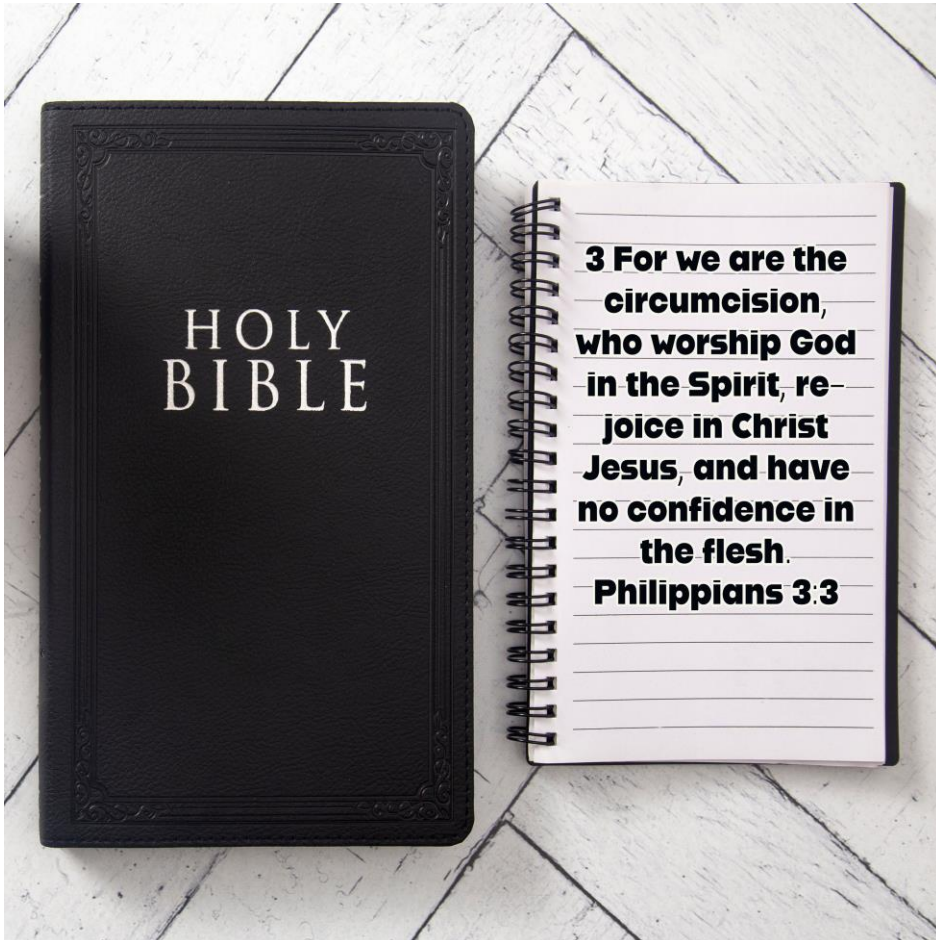 HOLY
BIBLE
3 For we are the
circumcision,
who worship God
in the Spirit, re-
joice in Christ
Jesus, and have
no confidence in
the flesh.
Philippians 3:3